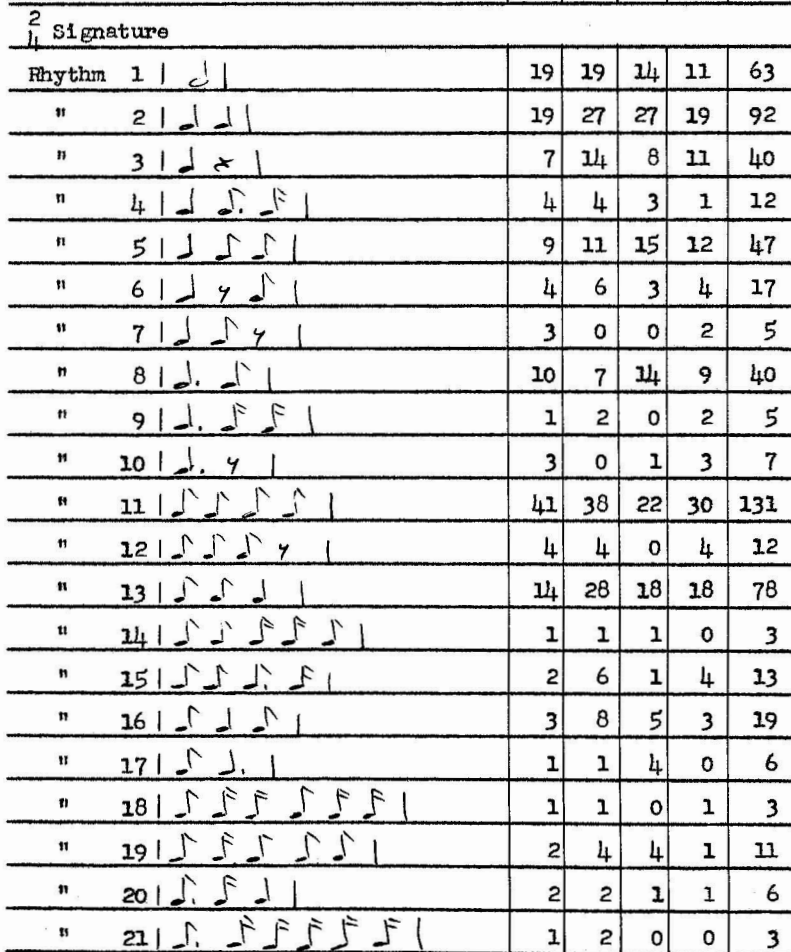 2/4 Signature
Rhythm 1 19 19 14 11 63
" 2 19 27 27 19 92
" 3 7 14 8 11 40
" 4 4 4 3 1 12
" 5 9 11 15 12 47
" 6 4 6 3 4 17
" 7 3 0 0 2 5
" 8 10 7 14 9 40
" 9 1 2 0 2 5
" 10 3 0 1 3 7
" 11 41 38 22 30 131
" 12 4 4 0 4 12
" 13 14 28 18 18 78
" 14 1 1 1 0 3
" 15 2 6 1 4 13
" 16 3 8 5 3 19
" 17 1 1 4 0 6
" 18 1 1 0 1 3
" 19 2 4 4 1 11
" 20 2 2 1 1 6
" 21 1 2 0 0 3